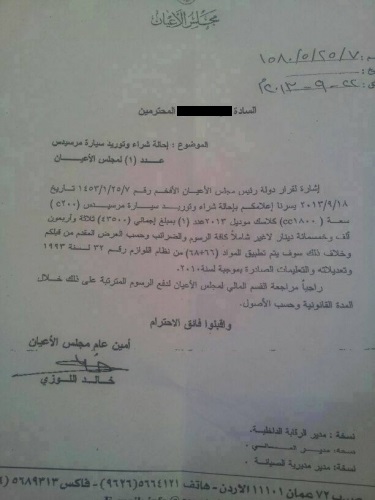 مجلس الأعيان
١٥٨٠/٥/٢٥/٧
٢٠١٣-٩-٢٢
السادة المحترمين
الموضوع : إحالة شراء وتوريد سيارة مرسيدس
عدد (١) لمجلس الأعيان
إشارة لقرار دولة رئيس مجلس الأعيان الأفخم رقم ١٤٥٣/١/٢٥/٧ تاريخ
٢٠١٣/٩/١٨ يسرنا إعلامكم بإحالة شراء وتوريد سيارة مرسيدس (c٢٠٠)
سعة (cc١٨٠٠) كلاسك موديل ٢٠١٣ عدد (١) بمبلغ إجمالي (٤٣٥٠٠) ثلاثة وأربعون
ألف وخمسمائة دينار لاغير شاملاً كافة الرسوم والضرائب وحسب العرض المقدم من قبلكم
وخلاف ذلك سوف يتم تطبيق المواد (٦٨+٦٦) من نظام اللوازم رقم ٣٢ لسنة ١٩٩٣
وتعديلاته والتعليمات الصادرة بموجبة لسنة ٢٠١٠.
راجياً مراجعة القسم المالي لمجلس الأعيان لدفع الرسوم المترتبة على ذلك خلال
المدة القانونية وحسب الأصول.
واقبلوا فائق الاحترام
أمين عام مجلس الأعيان
خالد اللوزي
نسخة : مدير الرقابة الداخلية.
نسخة : مدير المالي.
نسخة : مدير مديرية الصيانة.
٧٢ عمان ١١١٠١ الأردن - هاتف ٥٦٦٤١٢١ (٩٦٢٦) - فاكس ٥٦٨٩٣١٣